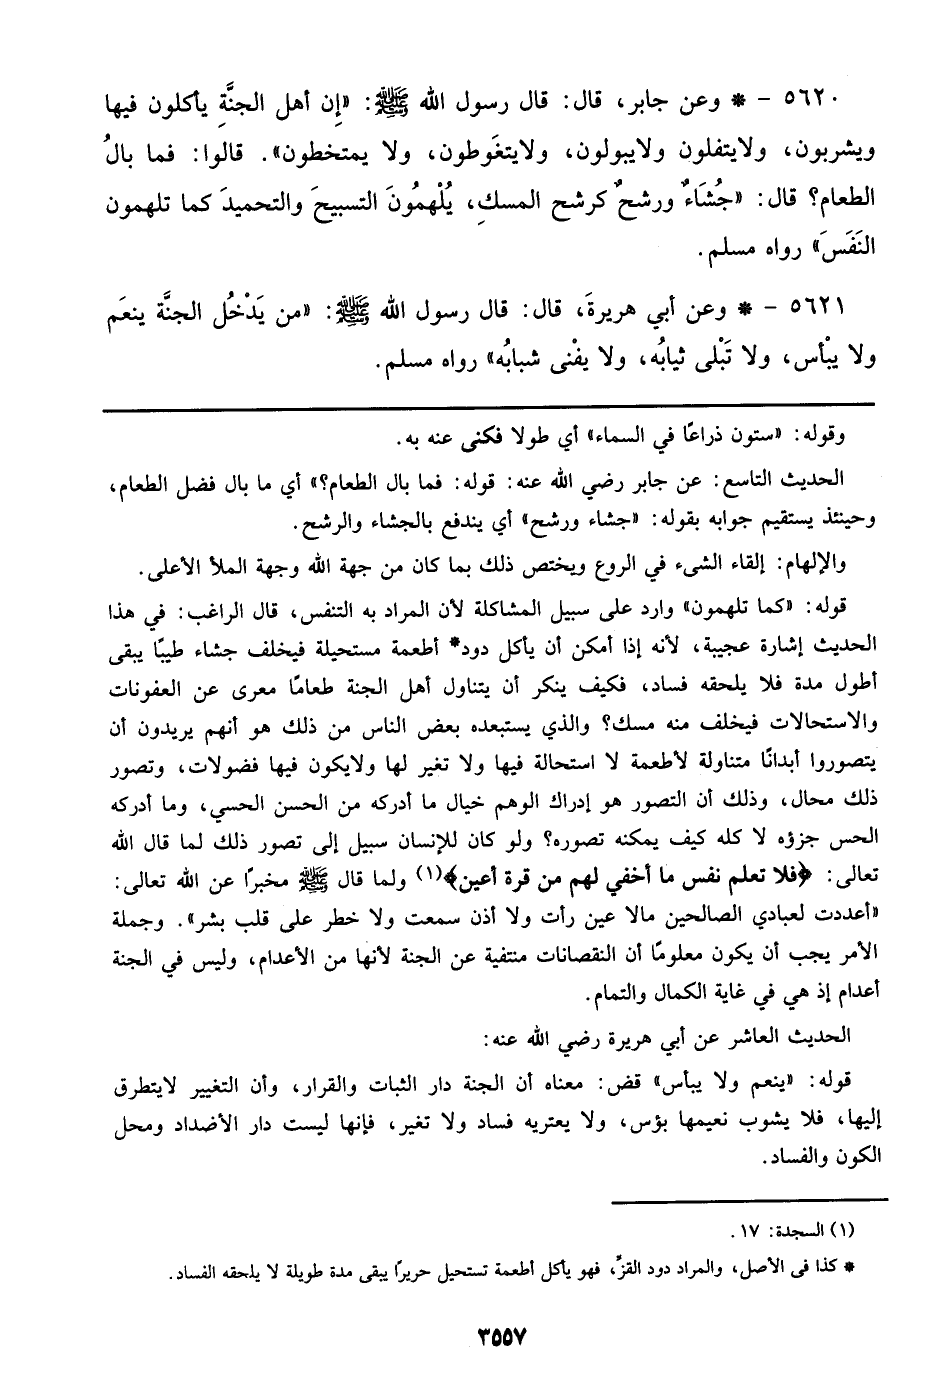 ٥٦٢٠ - * وعن جابر، قال: قال رسول الله ﷺ: «إِن أهل الجنَّةِ يأكلون فيها
ويشربون، ولايتفلون ولايبولون، ولايتغَوطون، ولا يمتخطون». قالوا: فما بالُ
الطعام؟ قال: «جُشَاءٌ ورشحٌ كرشح المسكِ، يُلْهمُونَ التسبيحَ والتحميدَ كما تلهمون
النَفَسَ» رواه مسلم.
٥٦٢١ - * وعن أبي هريرةَ، قال: قال رسول الله ﷺ: «من يَدْخُل الجنَّة ينعَم
ولا يبْأس، ولا تَبْلى ثيابُه، ولا يفْنى شبابُه» رواه مسلم.
وقوله: «ستون ذراعًا في السماء» أي طولا فكنى عنه به.
الحديث التاسع: عن جابر رضي الله عنه: قوله: فما بال الطعام؟» أي ما بال فضل الطعام،
وحينئذ يستقيم جوابه بقوله: «جشاء ورشح» أي يندفع بالجشاء والرشح.
والإلهام: إلقاء الشىء في الروع ويختص ذلك بما كان من جهة الله وجهة الملأ الأعلى.
قوله: «كما تلهمون» وارد على سبيل المشاكلة لأن المراد به التنفس، قال الراغب: في هذا
الحديث إشارة عجيبة، لأنه إذا أمكن أن يأكل دود* أطعمة مستحيلة فيخلف جشاء طيبًا يبقى
أطول مدة فلا يلحقه فساد، فكيف ينكر أن يتناول أهل الجنة طعامًا معرى عن العفونات
والاستحالات فيخلف منه مسك؟ والذي يستبعده بعض الناس من ذلك هو أنهم يريدون أن
يتصوروا أبدانًا متناولة لأطعمة لا استحالة فيها ولا تغير لها ولايكون فيها فضولات، وتصور
ذلك محال، وذلك أن التصور هو إدراك الوهم خيال ما أدركه من الحسن الحسي، وما أدركه
الحس جزؤه لا كله كيف يمكنه تصوره؟ ولو كان للإنسان سبيل إلى تصور ذلك لما قال الله
تعالى: ﴿فلا تعلم نفس ما أخفي لهم من قرة أعين﴾(١) ولما قال ﷺ مخبرًا عن الله تعالى:
«أعددت لعبادي الصالحين مالا عين رأت ولا أذن سمعت ولا خطر على قلب بشر». وجملة
الأمر يجب أن يكون معلومًا أن النقصانات منتفية عن الجنة لأنها من الأعدام، وليس في الجنة
أعدام إذ هي في غاية الكمال والتمام.
الحديث العاشر عن أبي هريرة رضي الله عنه:
قوله: «ينعم ولا يبأس» قض: معناه أن الجنة دار الثبات والقرار، وأن التغيير لايتطرق
إليها، فلا يشوب نعيمها بؤس، ولا يعتريه فساد ولا تغير، فإنها ليست دار الأضداد ومحل
الكون والفساد.
(١) السجدة: ١٧.
* كذا فى الأصل، والمراد دود القزِّ، فهو يأكل أطعمة تستحيل حريرًا يبقى مدة طويلة لا يلحقه الفساد.
٣٥٥٧